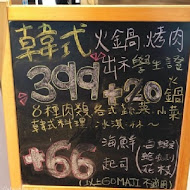 韓式火鍋烤肉
出示學生證
399+20 火鍋
8種肉類 各式蔬菜 小菜
韓式料理 冰淇淋
+66 海鮮 起司
白蝦
鮑魚
花枝
以上GOMAJI 不適用